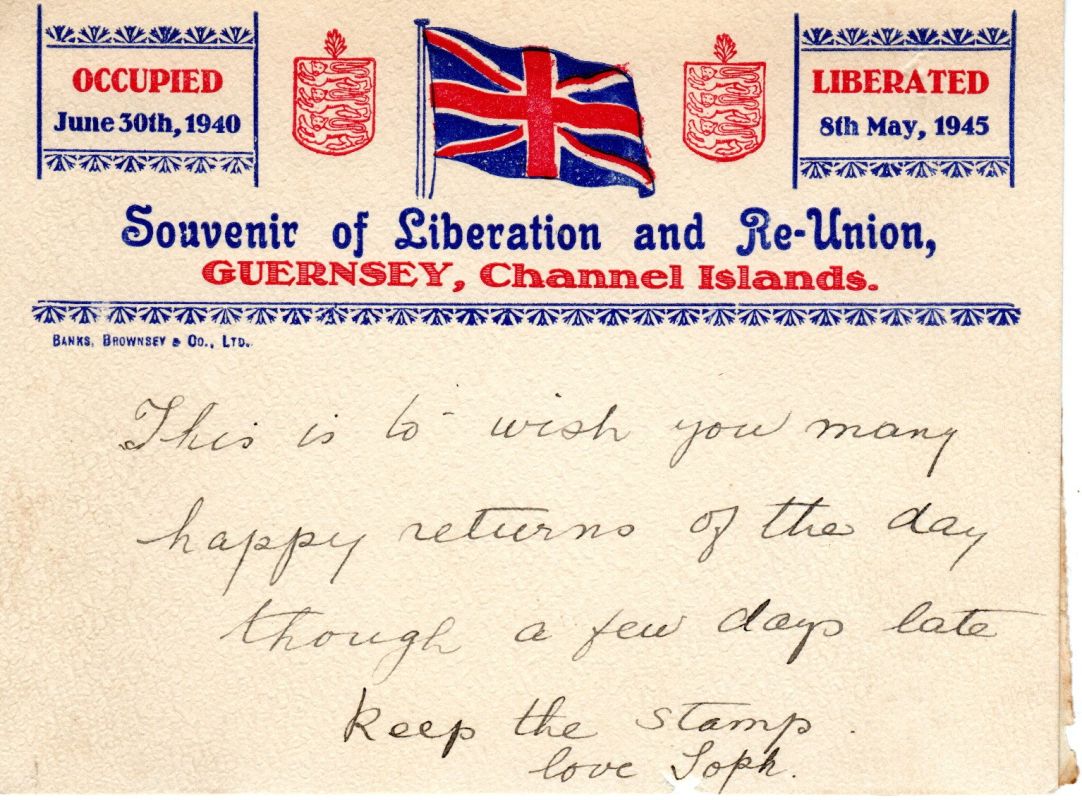 OCCUPIED
June 30th, 1940
LIBERATED
8th May, 1945
Souvenir of Liberation and Re-Union,
GUERNSEY, Channel Islands.
BANKS, BROWNSEY & CO., LTD.
This is to wish you many
happy returns of the day
though a few days late
keep the stamp.
love Soph.